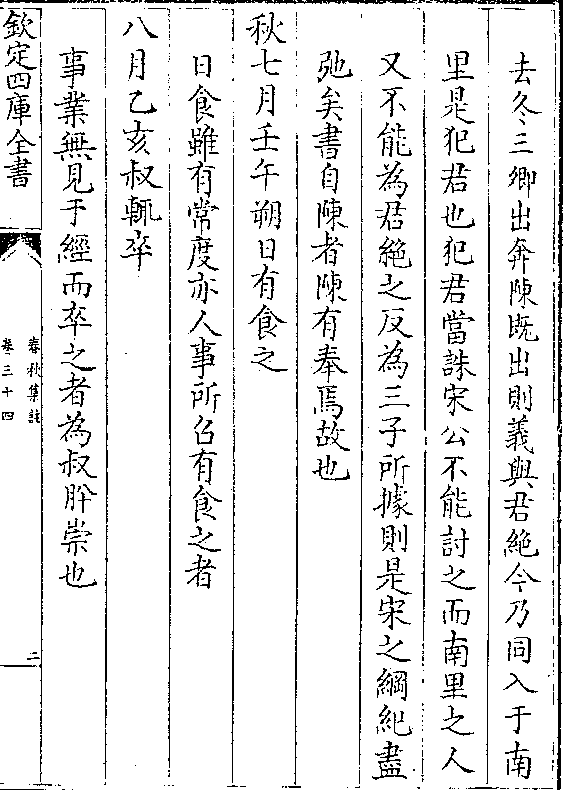 去冬三卿出奔陳既出則義與君絶今乃同入于南
里是犯君也犯君當誅宋公不能討之而南里之人
又不能為君絶之反為三子所據則是宋之綱紀盡
弛矣書自陳者陳有奉焉故也
秋七月壬午朔日有食之
日食雖有常度亦人事所召有食之者
八月乙亥叔輒卒
事業無見于經而卒之者為叔肸崇也
欽定四庫全書
春秋集註
卷三十四
二